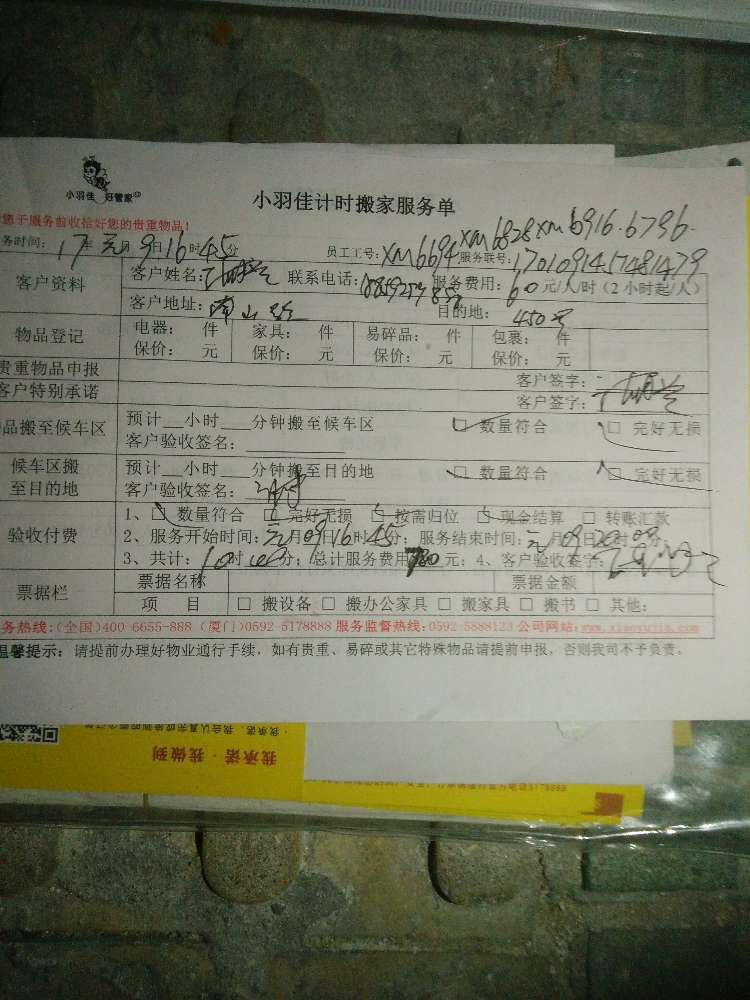 小羽佳 好管家
小羽佳计时搬家服务单
您于服务前收拾好您的贵重物品!
务时间: 17年元月9日16时45分 员工工号: XM6694 XM6828 XM6916.6796.
服务联号: 1701091457481479
客户资料 客户姓名: 联系电话: 服务费用: 60元/人/时(2小时起/人)
客户地址: 南山路 目的地: 450号
物品登记 电器: 件 家具: 件 易碎品: 件 包裹: 件
保价: 元 保价: 元 保价: 元 保价: 元
贵重物品申报 客户签字:
客户特别承诺 客户签字:
品搬至候车区 预计__小时___分钟搬至候车区 □ 数量符合 □ 完好无损
客户验收签名:
候车区搬至目的地 预计__小时___分钟搬至目的地 □ 数量符合 □ 完好无损
客户验收签名:
验收付费 1、□ 数量符合 □ 完好无损 □ 按需归位 □ 现金结算 □ 转账汇款
2、服务开始时间: 元月09日16时45分; 服务结束时间: 元月09日20时09分;
3、共计: 时 分; 总计服务费用 780元; 4、客户验收签字:
票据栏 票据名称 票据金额
项 目 □ 搬设备 □ 搬办公家具 □ 搬家具 □ 搬书 □ 其他:
务热线:(全国)400-6655-888 (厦门)0592-5178888 服务监督热线:0592-5888123 公司网站:www.xiaoyujia.com
温馨提示: 请提前办理好物业通行手续, 如有贵重、易碎或其它特殊物品请提前申报, 否则我司不予负责。
我承诺·我做到